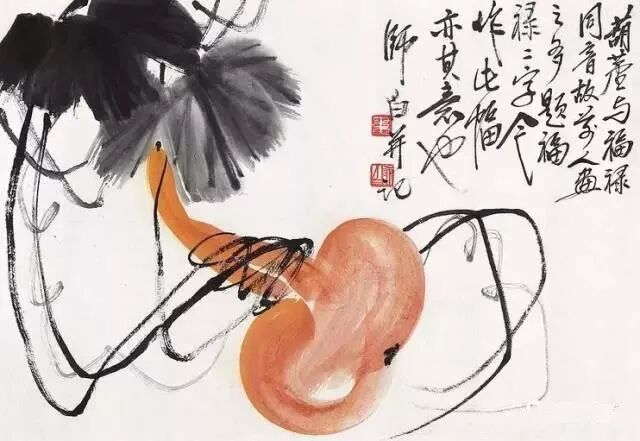 葫蘆与福禄
同音故前人畫
之多題福
禄二字今
作此幅
亦其意也
師白并记